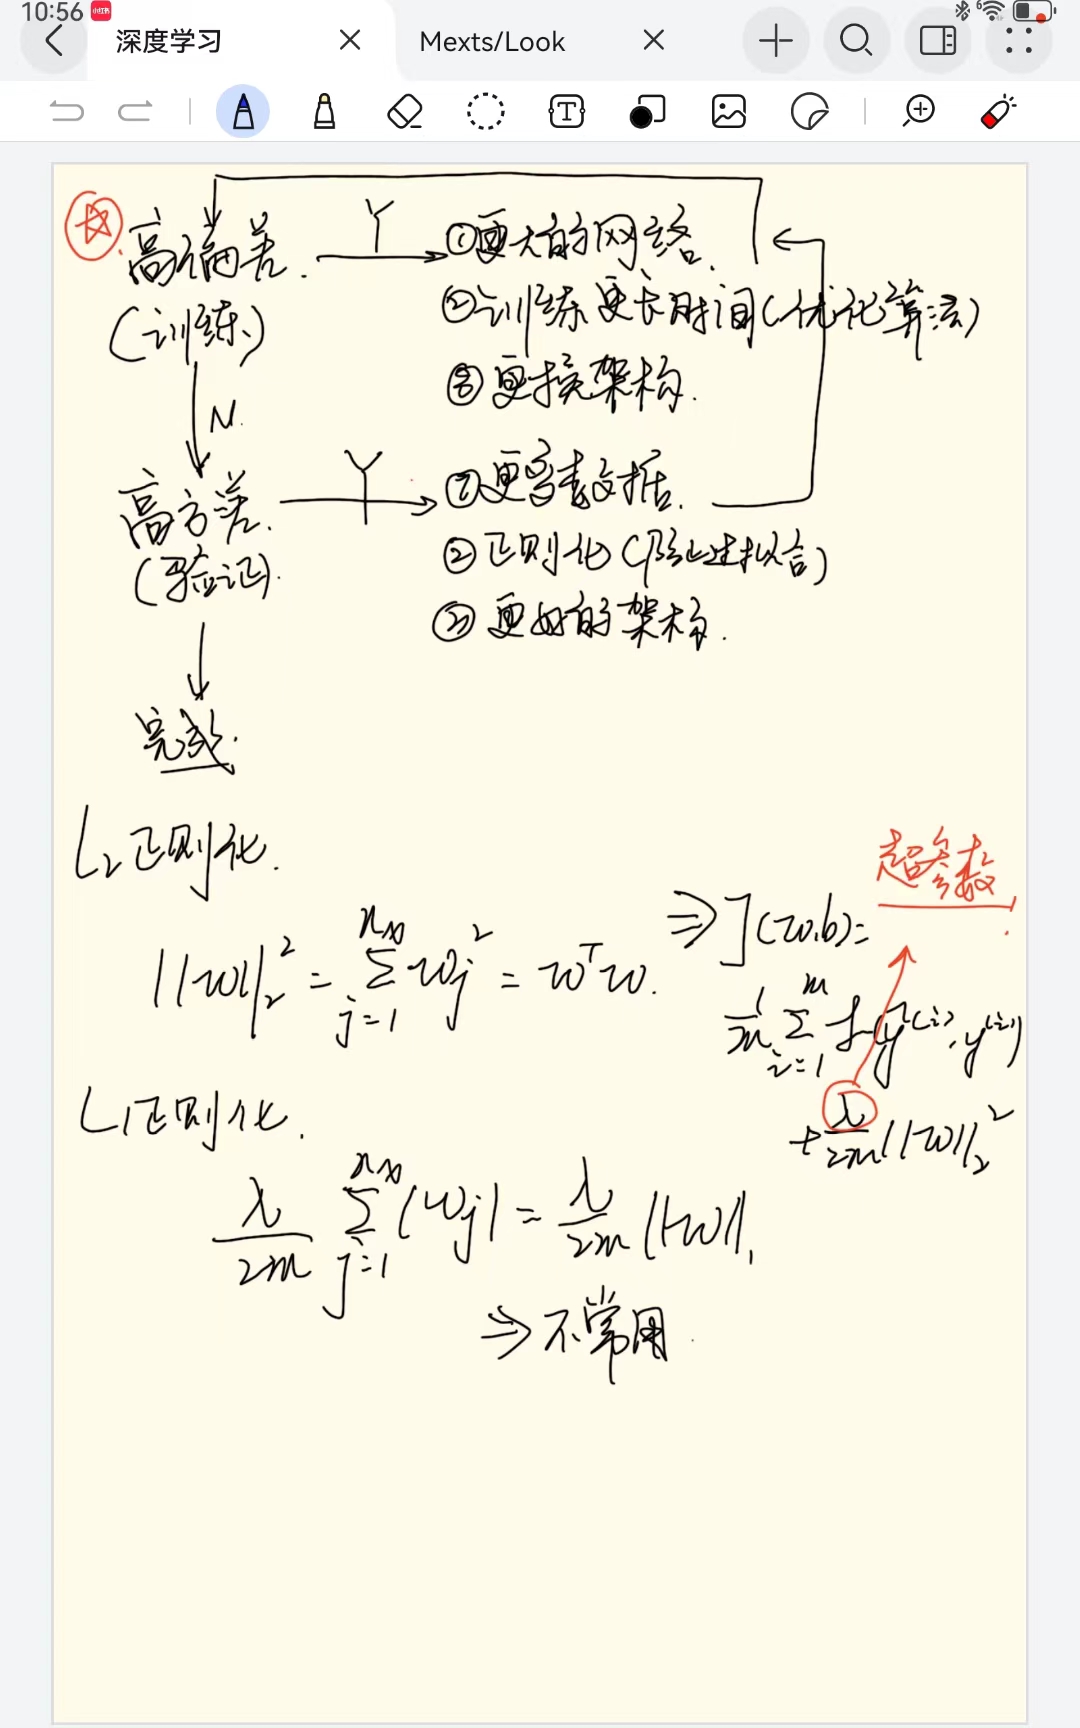 10:56
深度学习
Mexts/Look
高偏差. Y ①更大的网络.
(训练) ②训练更长时间(优化算法)
③更换架构.
N.
高方差. Y ①更多数据.
(验证). ②正则化(防止过拟合)
③更好的架构.
完成.
L₂正则化.
超参数
||w||₂² = Σ_{j=1}^{nₓ} wj² = wᵀw. ⇒ J(w,b)=
1/m Σ_{i=1}^{m} L(ŷ⁽ⁱ⁾, y⁽ⁱ⁾)
+ λ/2m ||w||₂²
L₁正则化.
λ/2m Σ_{j=1}^{nₓ} |wj| = λ/2m ||w||₁
⇒ 不常用.